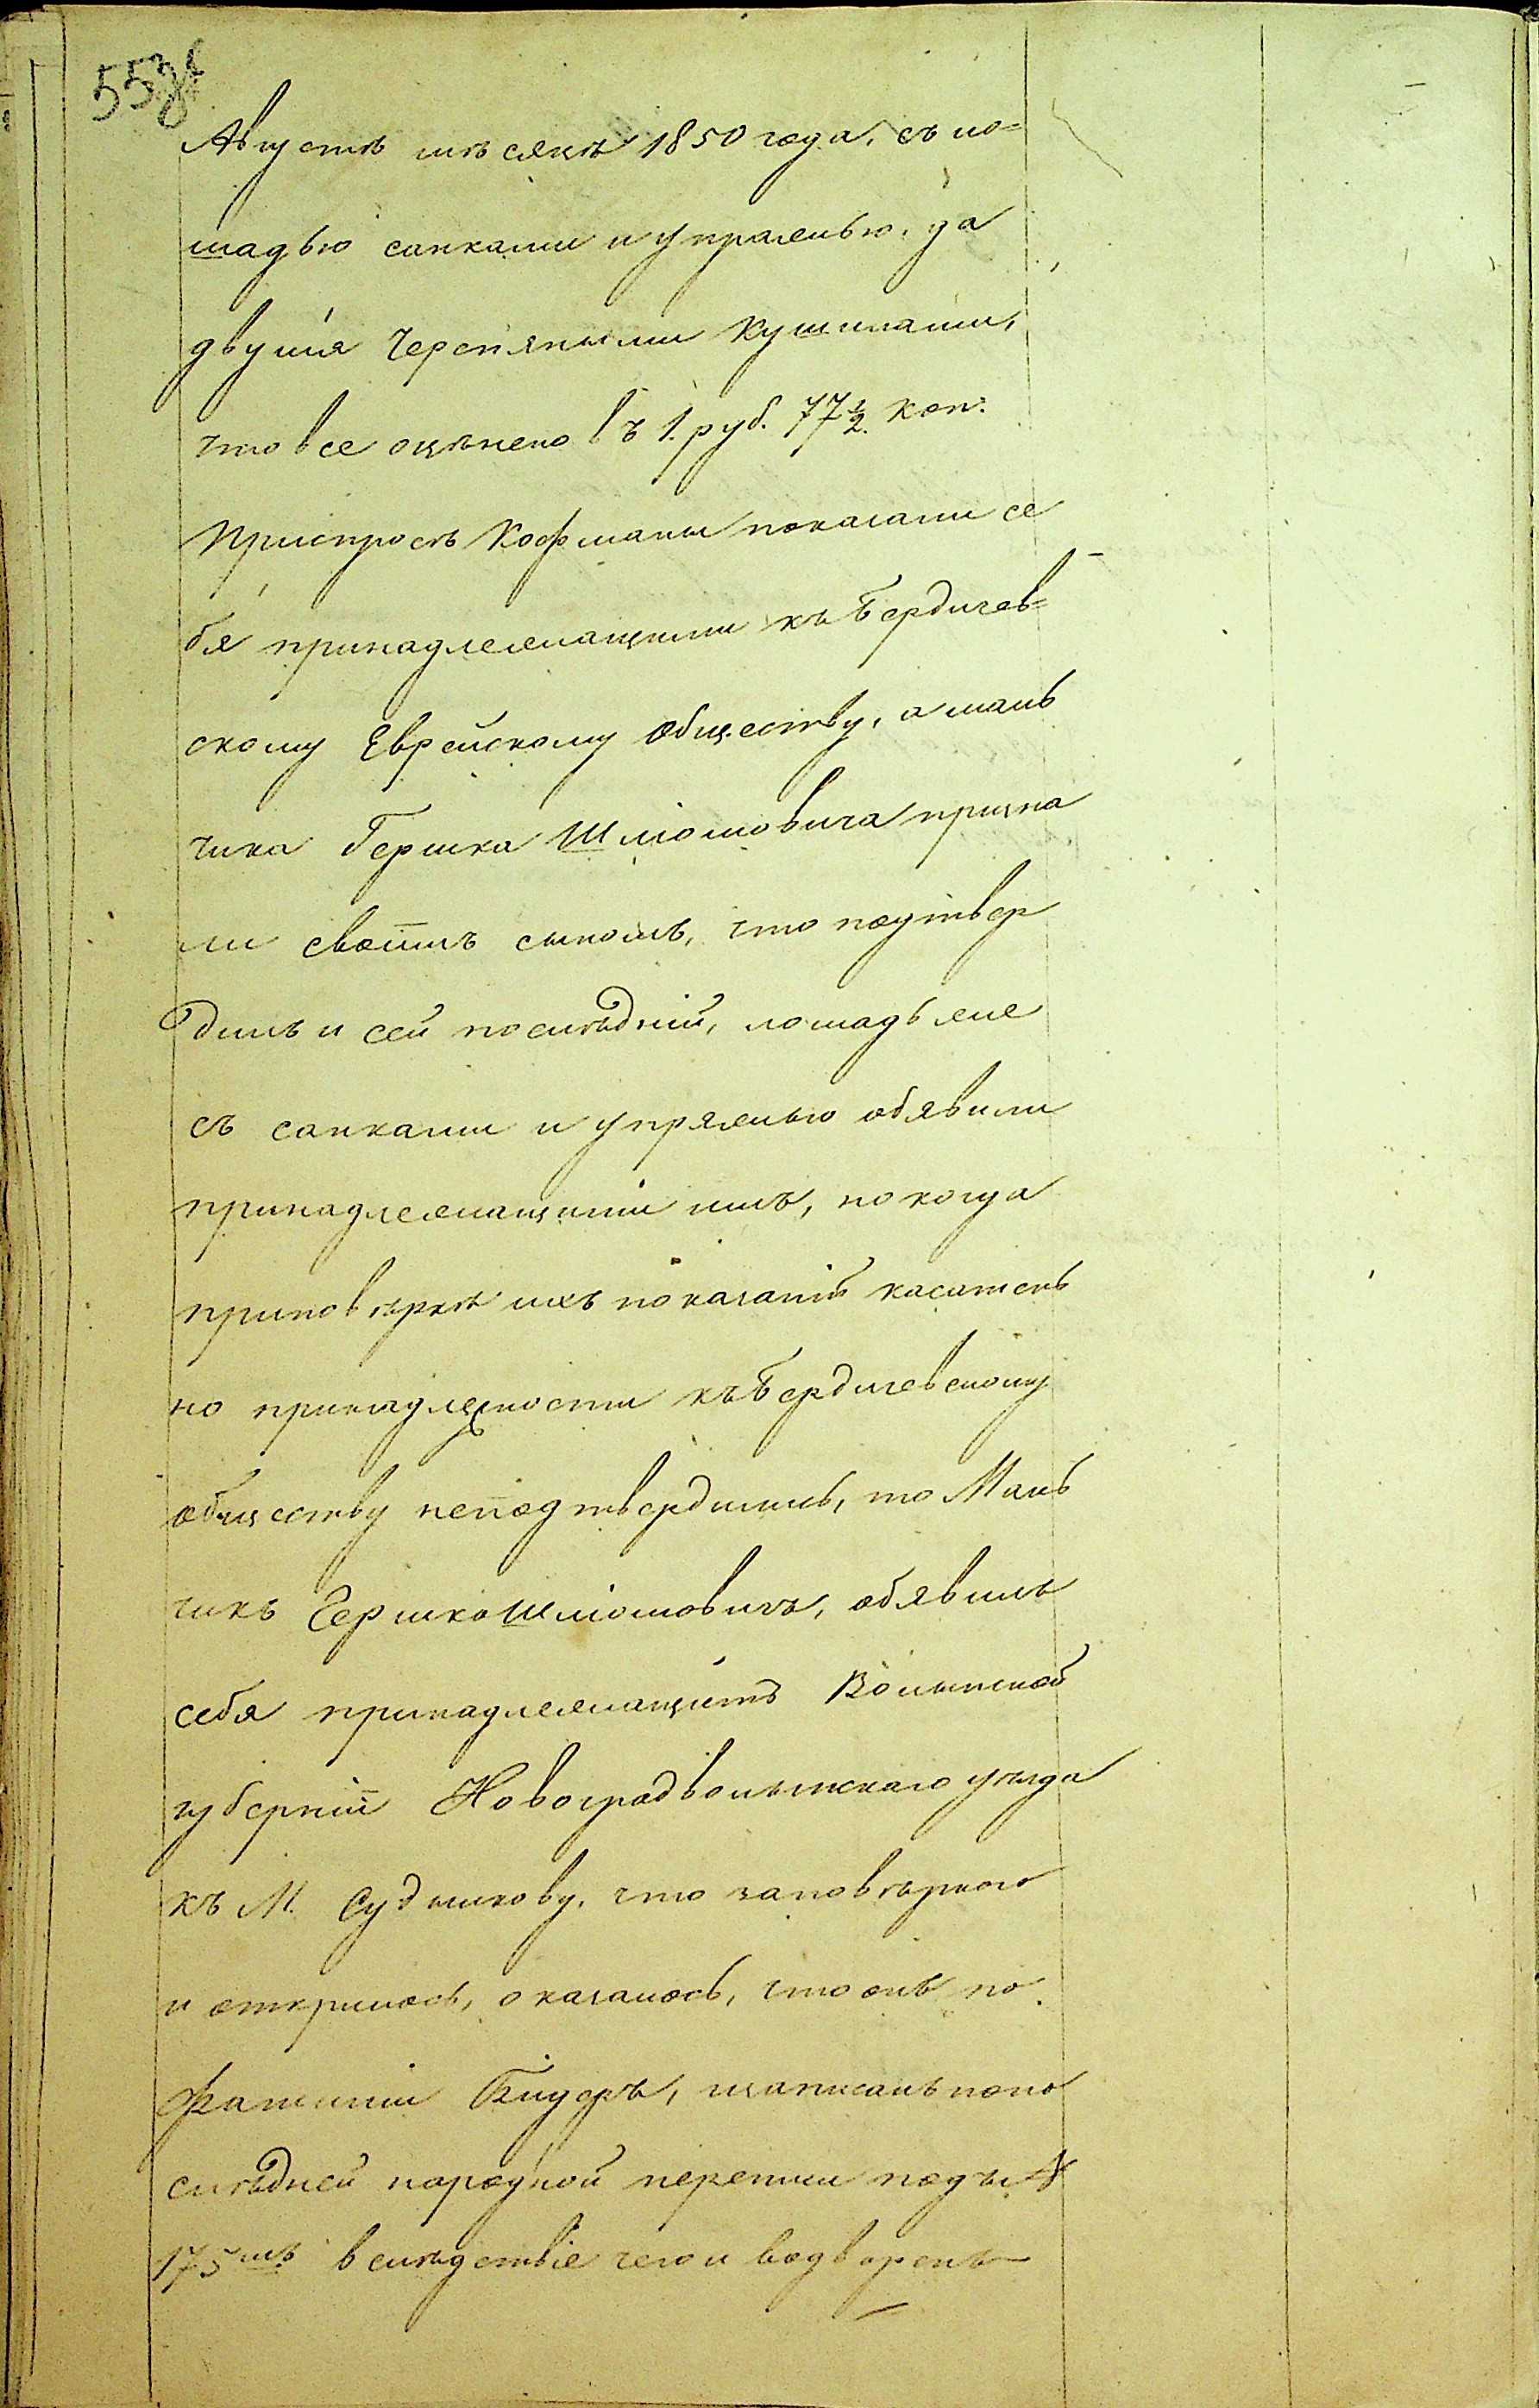 553
Августѣ мѣсяцѣ 1850 года, съ ло=
шадью санками и упряжью, да
двумя черепяными кушинами,
что все оценено въ 1. руб. 77½ коп.
Приспросѣ Кофманы показали се
бя принадлежащими къ Бердичев=
скому Еврейскому обществу, а маль
чика Гершка Шліомовича призна
ли своимъ сыномъ, что подтвер
дилъ и сей послѣдній, лошадь же
съ санками и упряжью обявили
принадлежащими имъ, но когда
приповѣркѣ ихъ показаній касатель
но принадлежности къ Бердичевскому
обществу неподтвердились, то Маль
чикъ Гершко Шліомовичъ, обявилъ
себя принадлежащимъ Волынской
губерніи Новоградволынскаго уѣзда
къ М. Судилкову, что заповѣркою
и открилось, оказалось, что онъ по
фамиліи Бидеръ, изаписанъ попо
слѣдней народной переписи подъ №
175мъ вслѣдствіе чего и водворенъ